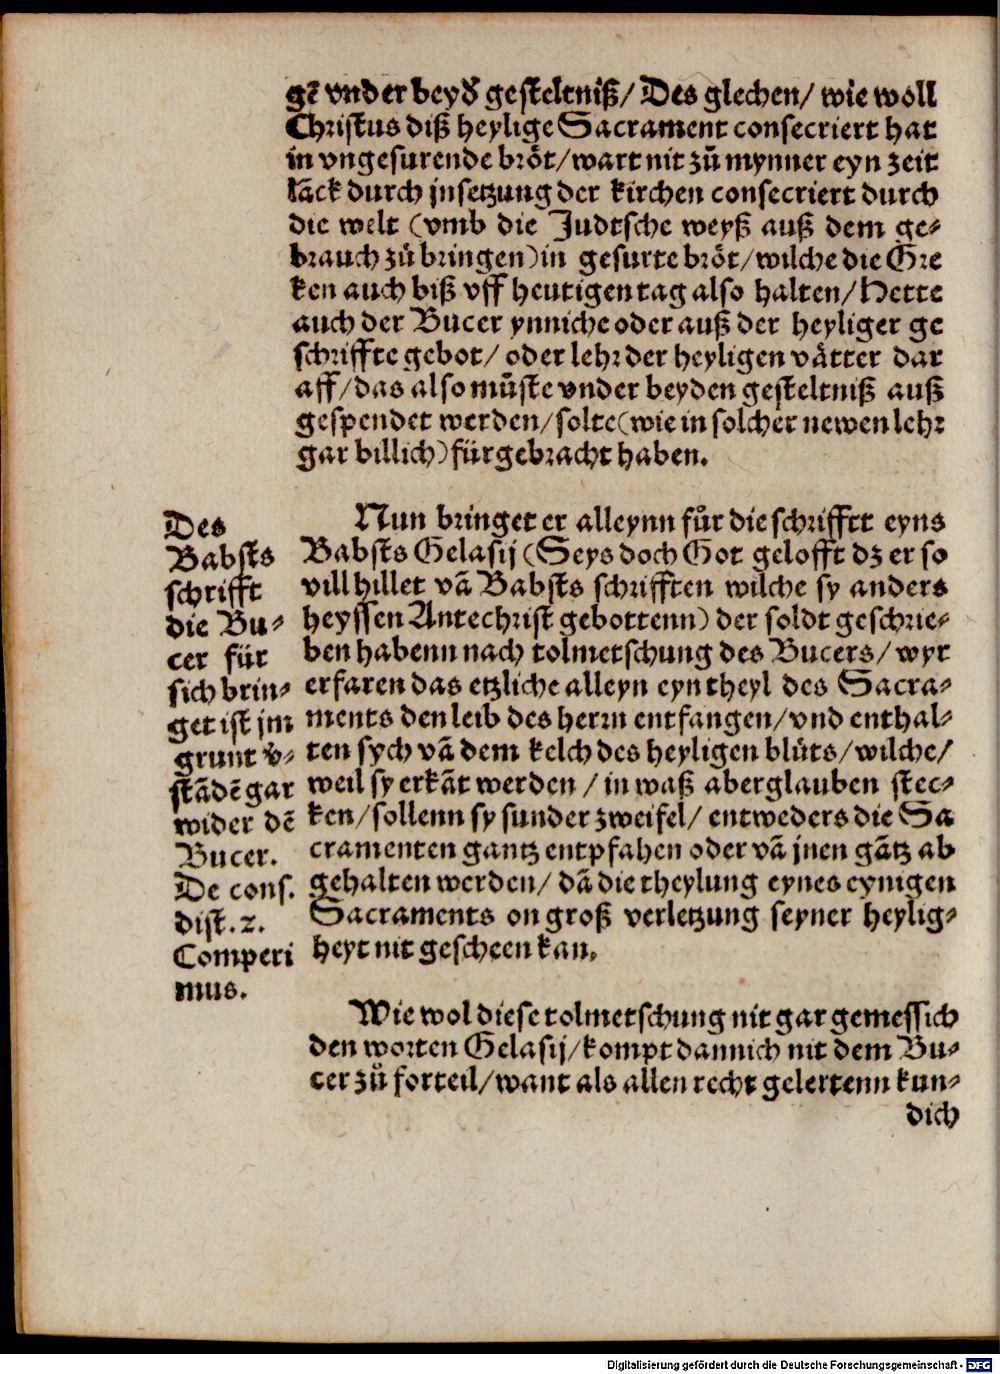 gē vnder beyd͛ gesteltniß/ Des glechen/ wie woll
Christus diß heylige Sacrament consecriert hat
in vngesurende brȯt/ wart nit zů mynner eyn zeit
lāck durch jnsetzung der kirchen consecriert durch
die welt (vmb die Judtsche weyß auß dem ge⸗
brauch zů bringen) in gesurte brȯt/ wilche die Gre
ken auch biß vff heutigen tag also halten/ Hette
auch der Bucer ynniche oder auß der heyliger ge
schriffte gebot/ oder lehr der heyligen våtter dar
aff/ das also můste vnder beyden gesteltniß auß
gespendet werden/ solte (wie in solcher newen lehr
gar billich) fürgebracht haben.
Nun bringet er alleynn fůr die schrifft eyns
Babsts Gelasij (Seys doch Got gelofft dz er so
vill hillet vā Babsts schrifften wilche sy anders
heyssen Antechrist gebottenn) der soldt geschrie⸗
ben habenn nach tolmetschung des Bucers/ wyr
erfaren das etzliche alleyn eyn theyl des Sacra⸗
ments den leib des herrn entfangen/ vnd enthal⸗
ten sych vā dem kelch des heyligen blůts/ wilche/
weil sy erkāt werden/ in waß aberglauben stec⸗
ken/ sollenn sy sunder zweifel/ entweders die Sa
cramenten gantz entpfahen oder vā jnen gātz ab
gehalten werden/ dā die theylung eynes eynigen
Sacraments on groß verletzung seyner heylig⸗
heyt nit gescheen kan.
Des
Babsts
schrifft
die Bu⸗
cer für
sich brin⸗
get ist jm
grunt v̓⸗
stādē gar
wider dē
Bucer.
De cons.
dist. 2.
Comperi
mus.
Wie wol diese tolmetschung nit gar gemessich
den worten Gelasij/ kompt dannich nit dem Bu⸗
cer zů forteil/ want als allen recht gelertenn kun⸗
dich
Digitalisierung gefördert durch die Deutsche Forschungsgemeinschaft - DFG